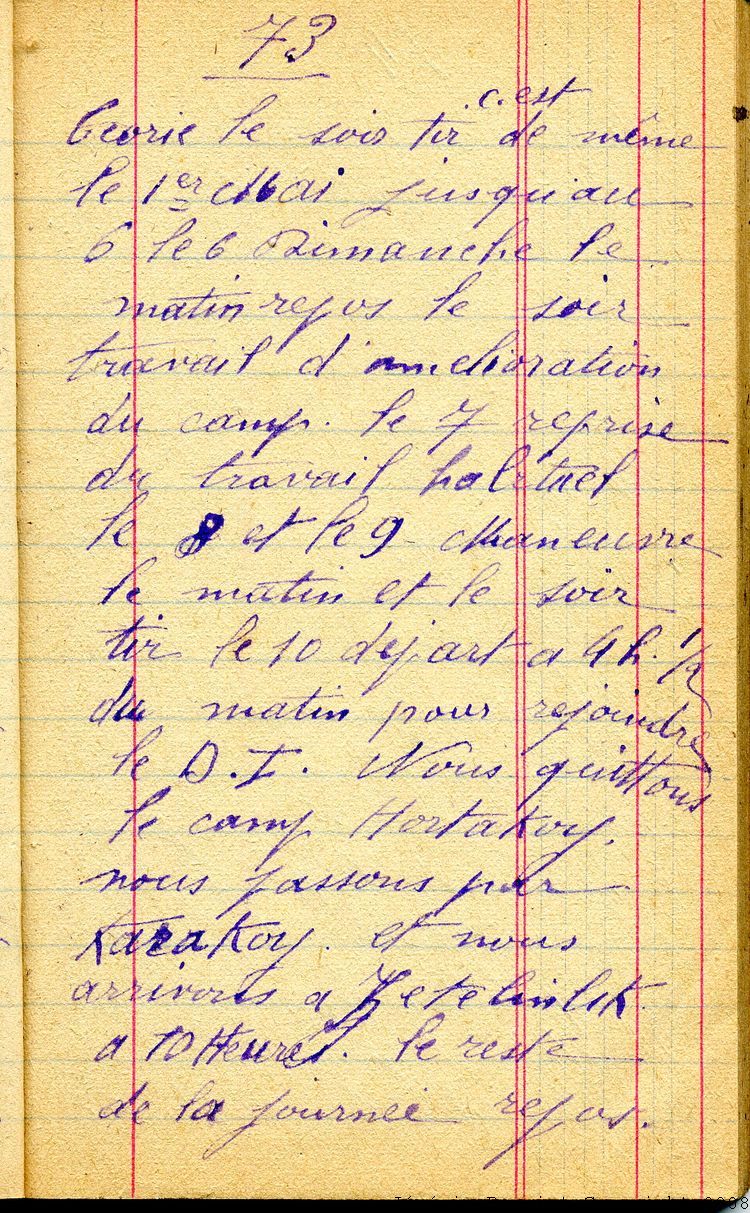 73
c. est
teorie le soir tir de même
le 1er Mai jusqu'au
6 le 6 Dimanche le
matin repos le soir
travail d'amelioration
du camp. le 7 reprise
du travail habituel
le 8 et le 9 Maneuvre
le matin et le soir
tir le 10 départ a 4 h. 1/2
du matin pour rejoindre
le D.I. Nous quittons
le camp Hortakoy.
nous passons par
Karakoy. et nous
arrivons a Zetelinlik
a 10 Heures. le reste
de la journée repos.